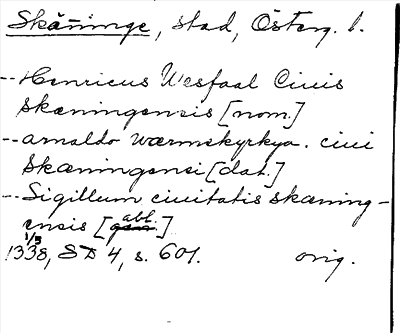 Skäninge, stad, Österg. l.
-- Henricus Wesfaal Ciuis
Skæningensis [nom.]
-- arnaldo wærmskyrkya. ciui
Skæningensi [dat.]
-- Sigillum ciuitatis skæning-
ensis [abl.]
1/3
1338, SD 4, s. 601. orig.